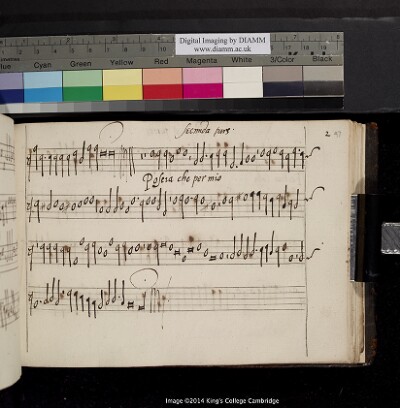 Digital Imaging by DIAMM
www.diamm.ac.uk
Blue Cyan Green Yellow Red Magenta White 3/Color Black
Secunda pars.
2
Posera che per mio
Image ©2014 King's College Cambridge